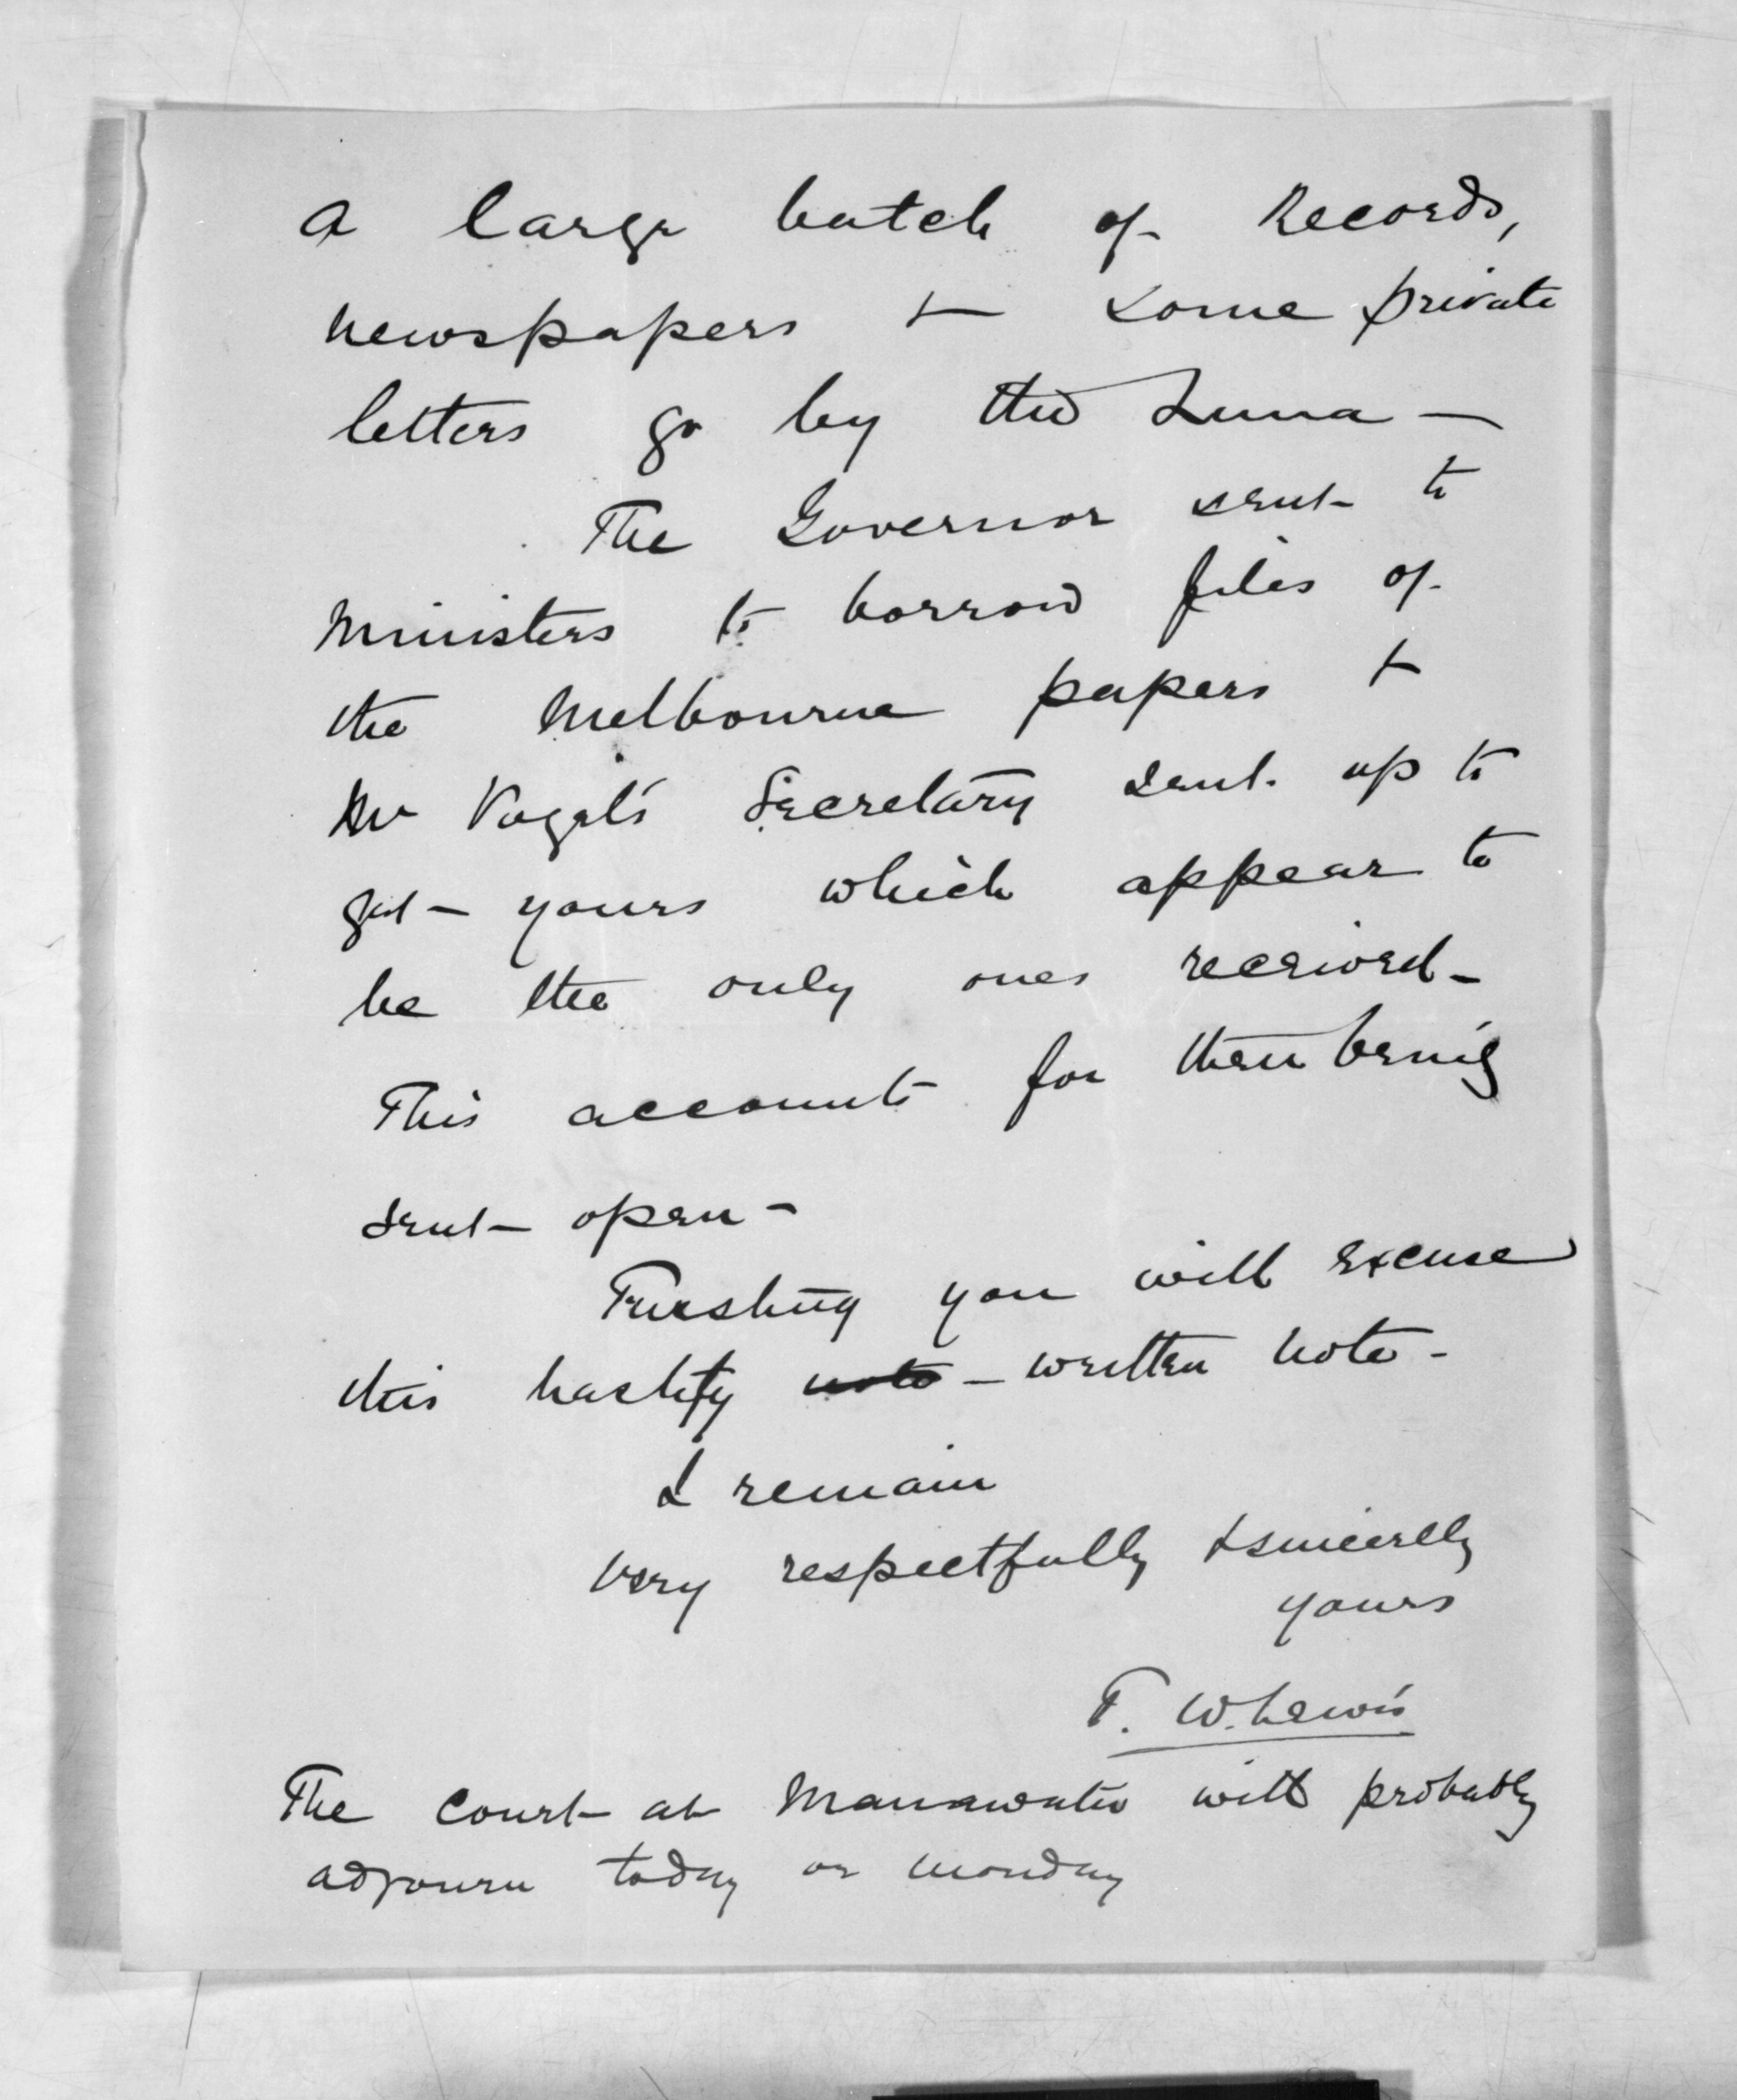 a large batch of Records,
newspapers & some private
letters go by the Luna —
The Governor sent to
Ministers to borrow files of
the Melbourne papers &
Mr Vogel's Secretary sent up to
get yours which appear to
be the only ones received -
This accounts for them being
sent open -
Trusting you will excuse
this hastily note - written note -
I remain
very respectfully & sincerely
yours
T. W. Lewis
The Court at Manawatu will probably
adjourn today or Monday